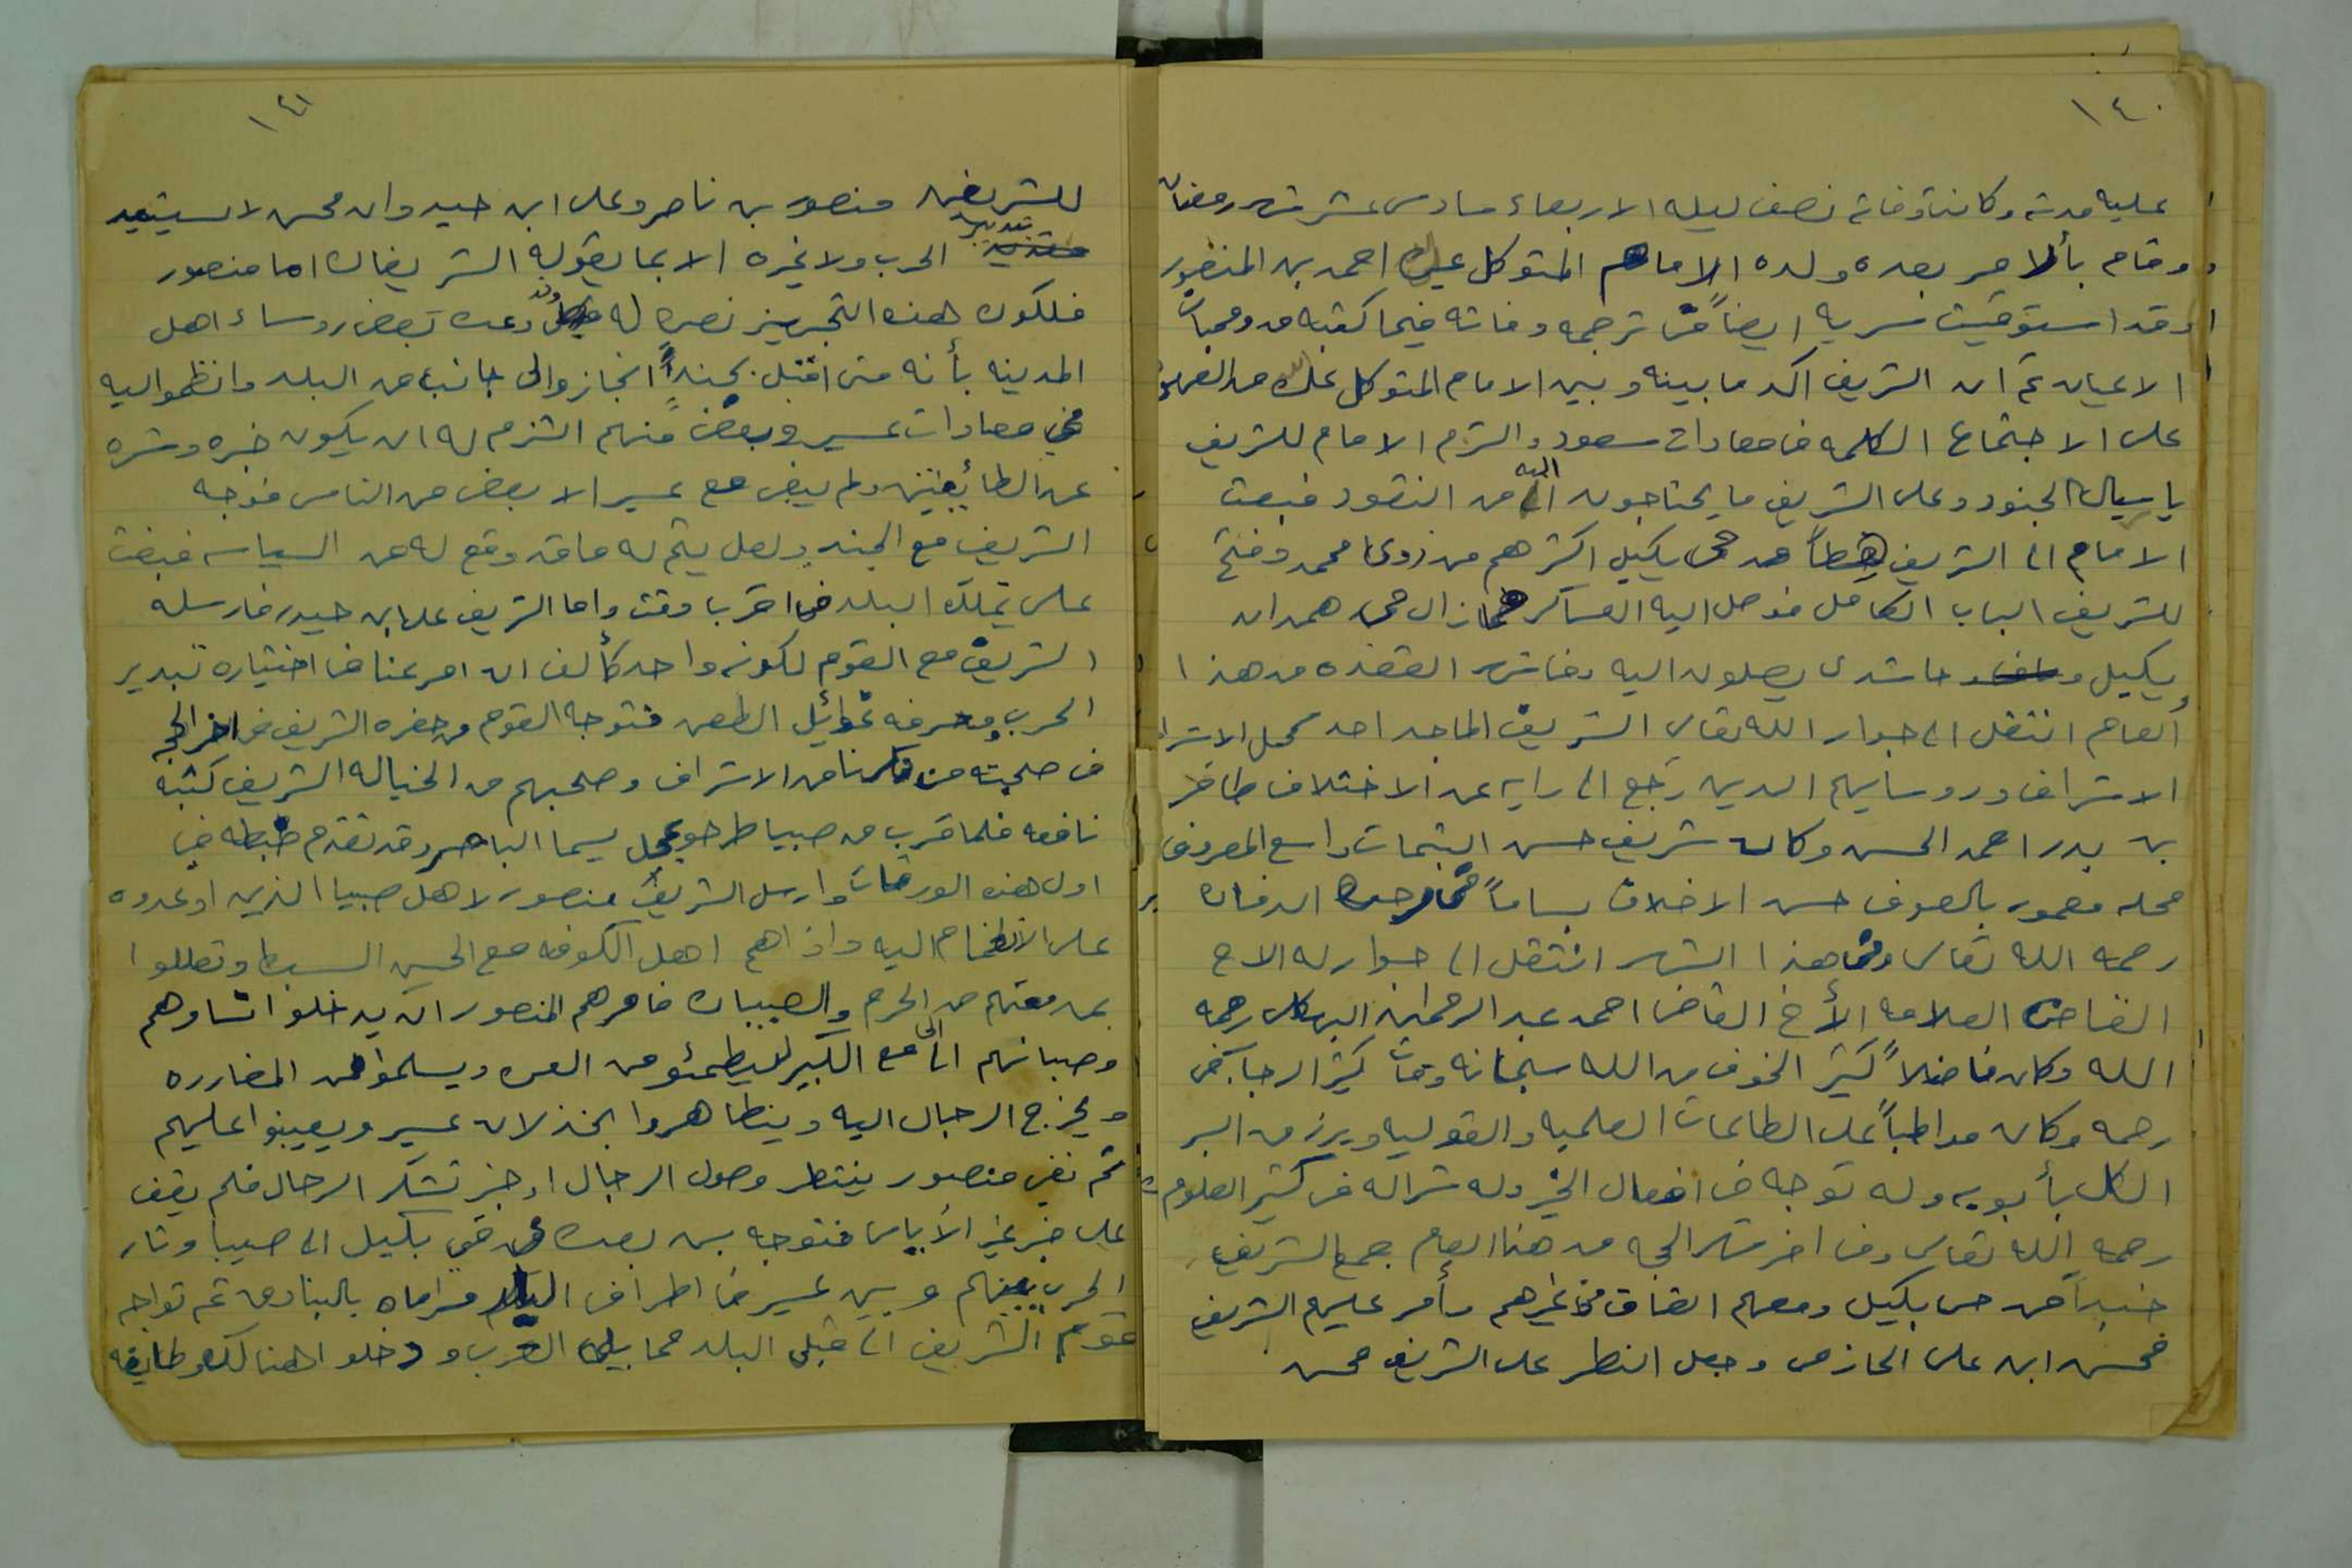 ١٤٠
عليه مدته وكانت وفاته نصف ليله الاربعاء سادس عشر شهر رمضان
وقام بألامر بعده ولده الامام المتوكل على الله احمد بن المنصور
وقد استوفيت سريه ايضاً ترجمه وفاته فيما كتبه من وفيات
الاعيان ثم ان الشريف اكد ما بينه وبين الامام المتوكل على الله من العهد
على الاجتماع الكلمه في معادات سعود والتزم الامام للشريف
يا سيال الجنود وعلى الشريف ما يحتاجون اليه من النقود فبعث
الامام الى الشريف من حي بكيل اكثرهم من ذوي محمد وفتح
للشريف الباب الكامل فوصل اليه العساكر فما زال حي همدان
بكيل وحاشدى يصلون اليه وفي شهر القعده من هذا
العام انتقل الى جوار الله تعالى الشريف الماجد احد كمل الاشراف
الاشراف وروسايهم الدين رجع الى رايه عن الاختلاف ظافر
بن بدر احمد الحسن وكان شريف حسن السمات واسع المعروف
محله معمور بالضيوف حسن الاخلاق بساماً
رحمه الله تعالى وفي هذا الشهر انتقل الى جوار له الاح
القاضي العلامه الأخ القاضي احمد عبد الرحمان البهكلى رحمه
الله وكان فاضلاً كثير الخوف من الله سبحانه ومات كثير الرجا في
رحمه وكان مواظباً على الطاعات العلميه والقوليه ويرزمن البر
الكل بأبويه وله توجه في افعال الخير وله شراكه في كثير العلوم
رحمه الله تعالى وفي اخر شهر الحجه من هذا العام جمع الشريف
جنداً من حي بكيل ومعهم الفاق من غيرهم وأمر عليهم الشريف
محسن ابن على الحازمى وجعل النظر على الشريف محسن
١٤١
للشريفين منصور بن ناصر وعلى ابن حيدر وان محسن لا يستبد
بتدبير الحرب ولا غيره الا بما يقوله الشريفان اما منصور
فلكون هذه التجهيز نصره له وقد وعده بعض روساء اهل
المدينه بأنه متى اقبل بجنداً انحازوالى جانبا من البلد وانظمواليه
في معادات عسير وبعضً منهم التزم له ان يكون خيره وشره
عن الطائفتين ولم يبقى مع عسير الا بعض من الناس فوجه
الشريف مع الجند ولعل يتم له ما قد وقع له من السياسه فبعث
على تملك البلد في اقرب وقت واما الشريف على ابن حيدر فارسله
الشريف مع القوم لكونه واحد كألف ان امر عنا في اختياره تبدير
الحرب ومعرفه غوائل الطعن فتوجه القوم من حضره الشريف في اخر الحجه
في صحبته من ذكرنا من الاشراف وصحبهم من الخياله الشريف كتبه
نافعه فلما قرب من صبيا طرحوا بمحل يسما الباهر وقد تقدم ضبطه في
اول هذه الورقات وارسل الشريف منصور لاهل صبيا الذين اوعدوه
على الانظمام اليه واذاهم اهل الكوفه مع الحسين السبط وتعللوا
بمن معتهم من الحرم والصبيان فامرهم المنصور ان يدخلوا نساوهم
وصبيانهم الى مع الكبير ليطمئنو من العره ويسلموا من المضارره
ويخرج الرجال اليه ويتظاهروا بخذلان عسير ويعينوا عليهم
ثم بقى منصور ينتظر وصول الرجال او خبر تشكر الرجال فلم يقف
على خبر غير الأياس فتوجه بمن بعده من حي بكيل الى صبيا وثار
الحرب بينهم وبين عسير في اطراف البلاد مراماه بالبنادق ثم تواجه
قوم الشريف الى قبلى البلد مما يلى الغرب ودخلوا هنالك وطايفه